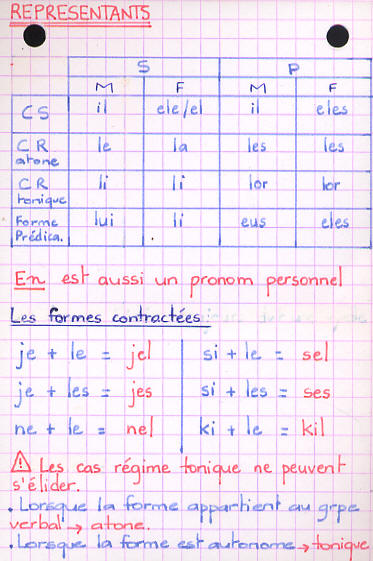 REPRESENTANTS
S P
M F M F
CS il ele/el il eles
CR atone le la les les
CR tonique li li lor lor
Forme Prédica. lui li eus eles
En est aussi un pronom personnel
Les formes contractées
je + le = jel si + le = sel
je + les = jes si + les = ses
ne + le = nel ki + le = kil
⚠ Les cas régime tonique ne peuvent
s'élider.
. Lorsque la forme appartient au grpe
verbal → atone.
. Lorsque la forme est autonome → tonique